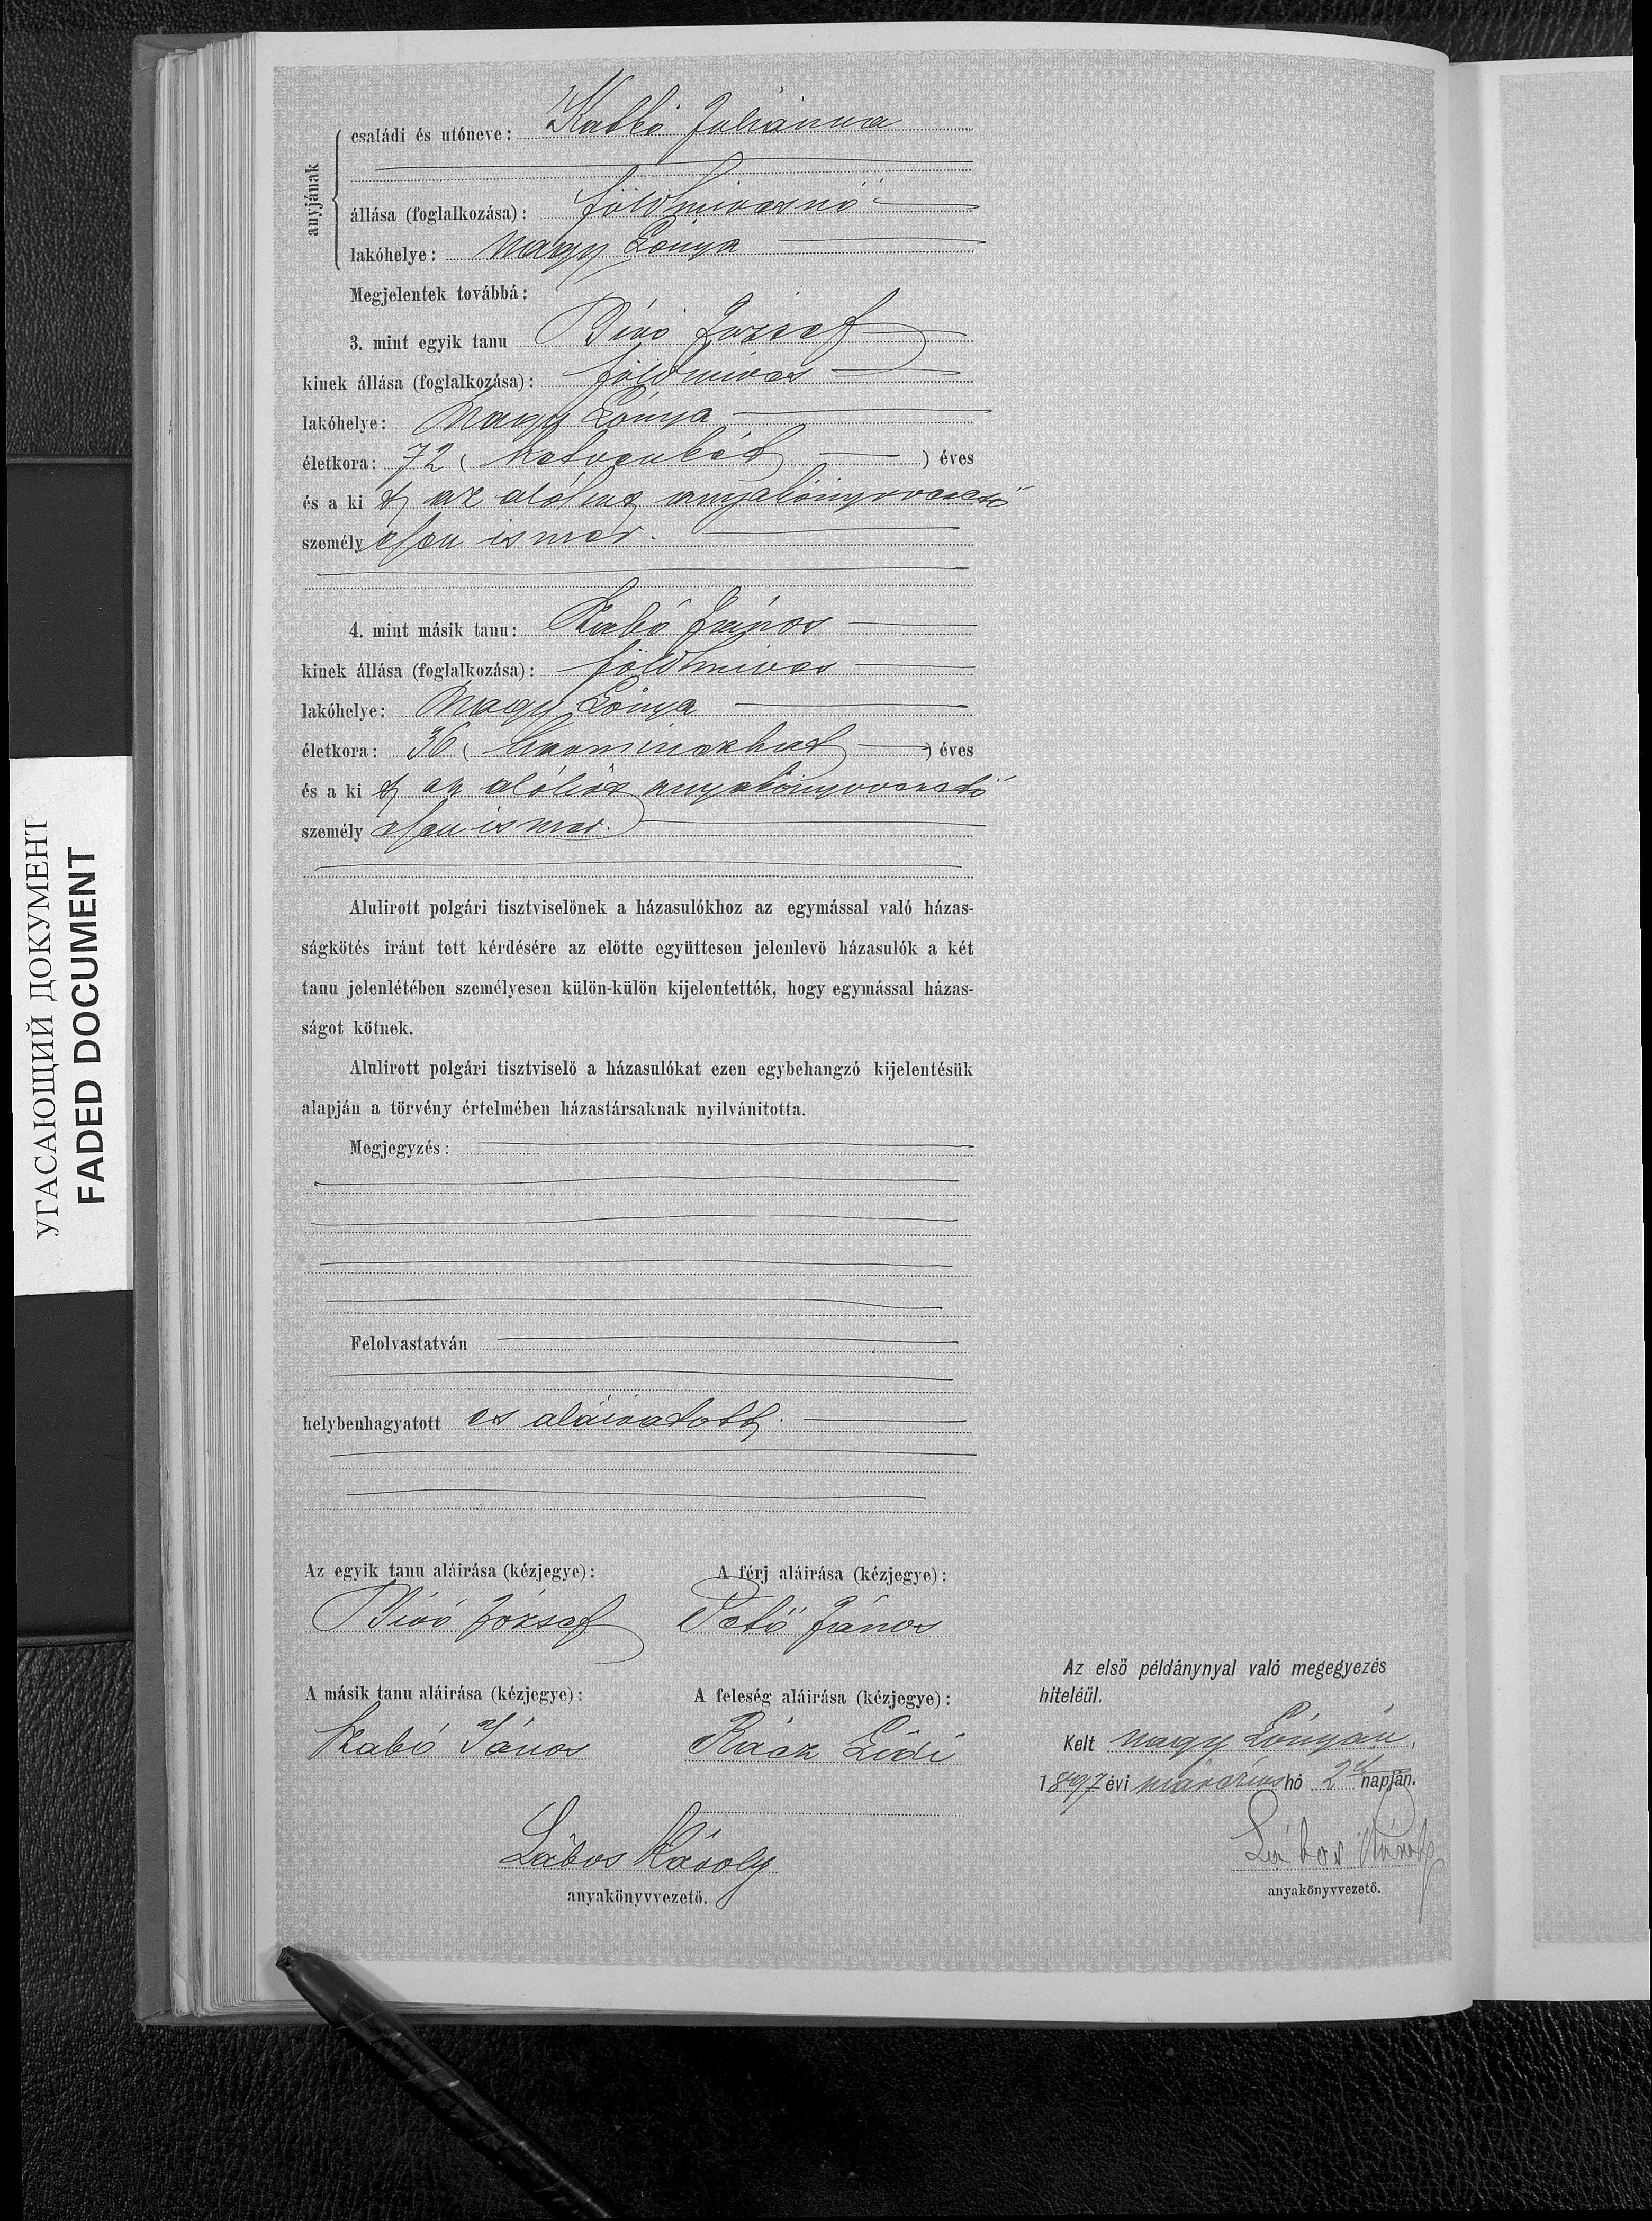 családi és utóneve: Katkó Juliánna
anyjának
állása (foglalkozása): földmivesnő
lakóhelye: Nagy Lónya
Megjelentek továbbá:
3. mint egyik tanu Biró József
kinek állása (foglalkozása): földmives
lakóhelye: Nagy Lónya
életkora: 72 ( hetvenkét ) éves
és a ki t az alólirt anyakönyvvezető
személyesen ismer.
4. mint másik tanu: Szabó János
kinek állása (foglalkozása): földmives
lakóhelye: Nagy Lónya
életkora: 36 ( harminczhat ) éves
és a ki t az alólirt anyakönyvvezető
személyesen ismer.
Alulirott polgári tisztviselönek a házasulókhoz az egymással való házas-
ságkötés iránt tett kérdésére az elötte együttesen jelenlevö házasulók a két
tanu jelenlétében személyesen külön-külön kijelentették, hogy egymással házas-
ságot kötnek.
Alulirott polgári tisztviselö a házasulókat ezen egybehangzó kijelentésük
alapján a törvény értelmében házastársaknak nyilvánitotta.
Megjegyzés:
Felolvastatván
helybenhagyatott és aláiratott.
Az egyik tanu aláirása (kézjegye): A férj aláirása (kézjegye):
Biró József Pető János
A másik tanu aláirása (kézjegye): A feleség aláirása (kézjegye):
Szabó János Rácz Lidi
Lábos Károly
anyakönyvvezetö.
Az elsö példánynyal való megegyezés
hiteléül.
Kelt Nagy Lónyán,
1897 évi márczius hó 2 napján.
Lábos Károly
anyakönyvvezetö.
УГАСАЮЩИЙ ДОКУМЕНТ
FADED DOCUMENT